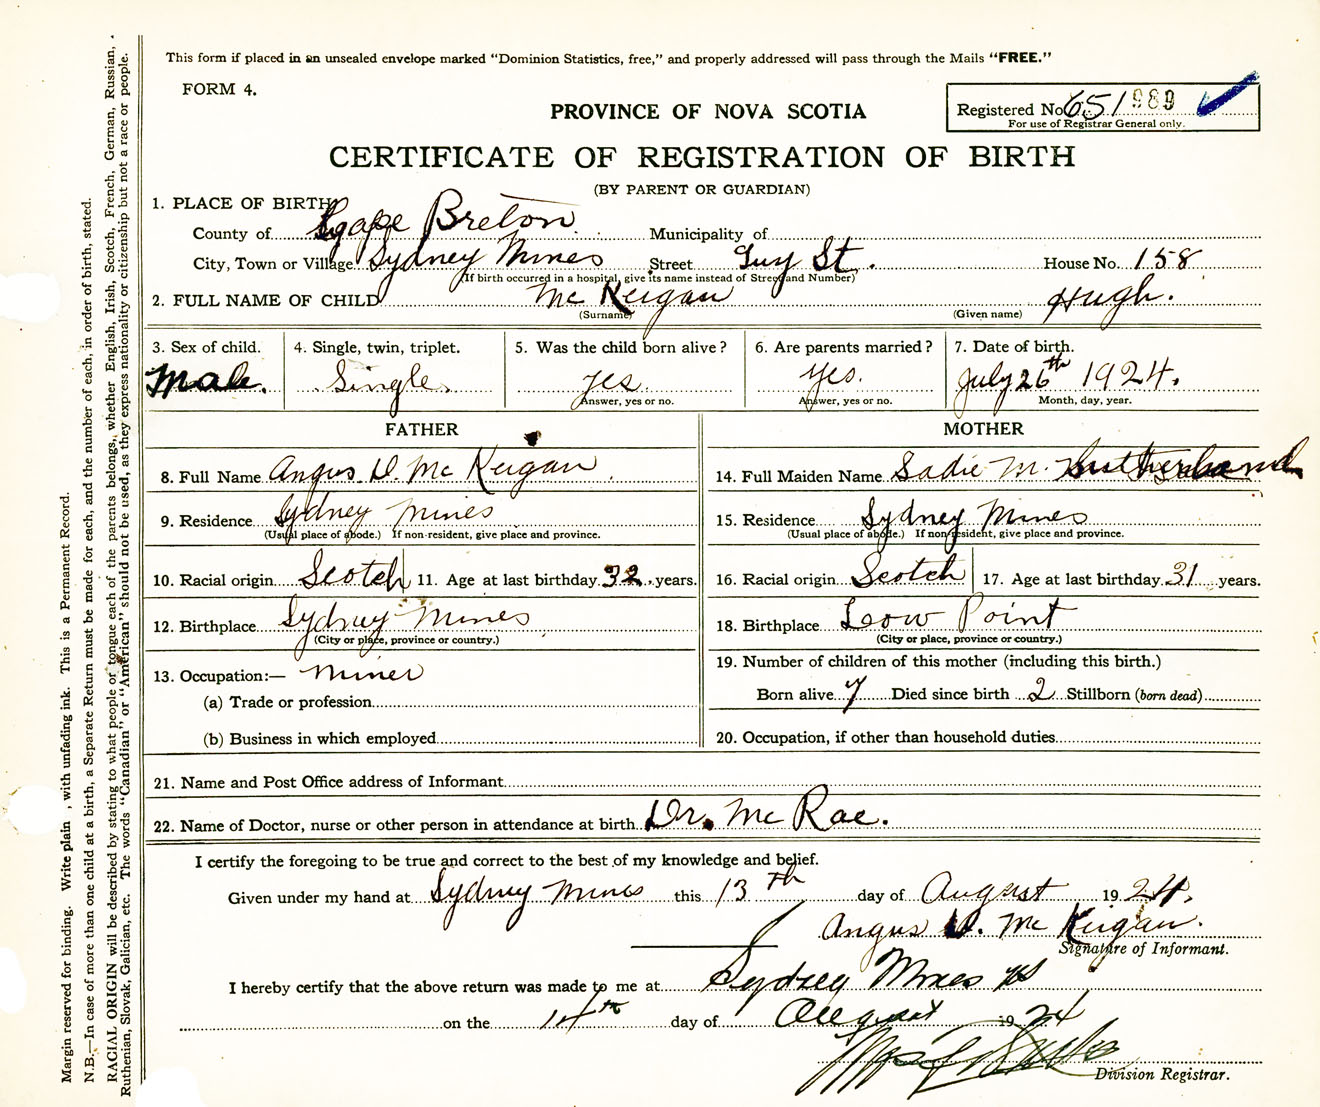 This form if placed in an unsealed envelope marked “Dominion Statistics, free,” and properly addressed will pass through the Mails “FREE.”
FORM 4.
Registered No. 651 989
For use of Registrar General only.
PROVINCE OF NOVA SCOTIA
CERTIFICATE OF REGISTRATION OF BIRTH
(BY PARENT OR GUARDIAN)
1. PLACE OF BIRTH
County of Cape Breton Municipality of
City, Town or Village Sydney Mines Street Guy St. House No. 158
(If birth occurred in a hospital, give its name instead of Street and Number)
2. FULL NAME OF CHILD Mc Keigan Hugh.
(Surname) (Given name)
3. Sex of child. 4. Single, twin, triplet. 5. Was the child born alive? 6. Are parents married? 7. Date of birth.
Male. Single. yes. yes. July 26th 1924.
Answer, yes or no. Answer, yes or no. Month, day, year.
FATHER MOTHER
8. Full Name Angus D. Mc Keigan 14. Full Maiden Name Sadie M. Sutherland
9. Residence Sydney Mines 15. Residence Sydney Mines
(Usual place of abode.) If non-resident, give place and province. (Usual place of abode.) If non-resident, give place and province.
10. Racial origin Scotch 11. Age at last birthday 32 years. 16. Racial origin Scotch 17. Age at last birthday 31 years.
12. Birthplace Sydney Mines 18. Birthplace Low Point
(City or place, province or country.) (City or place, province or country.)
13. Occupation:— Miner 19. Number of children of this mother (including this birth.)
(a) Trade or profession Born alive 7 Died since birth 2 Stillborn (born dead)
(b) Business in which employed 20. Occupation, if other than household duties
21. Name and Post Office address of Informant
22. Name of Doctor, nurse or other person in attendance at birth Dr. Mc Rae.
I certify the foregoing to be true and correct to the best of my knowledge and belief.
Given under my hand at Sydney Mines this 13th day of August 1924.
Angus D. Mc Keigan.
Signature of Informant.
I hereby certify that the above return was made to me at Sydney Mines NS
on the 14th day of August 1924
Division Registrar.
Margin reserved for binding. Write plain , with unfading ink. This is a Permanent Record.
N.B.—In case of more than one child at a birth, a Separate Return must be made for each, and the number of each, in order of birth, stated.
RACIAL ORIGIN will be described by stating to what people or tongue each of the parents belongs, whether English, Irish, Scotch, French, German, Russian,
Ruthenian, Slovak, Galician, etc. The words “Canadian” or “American” should not be used, as they express nationality or citizenship but not a race or people.